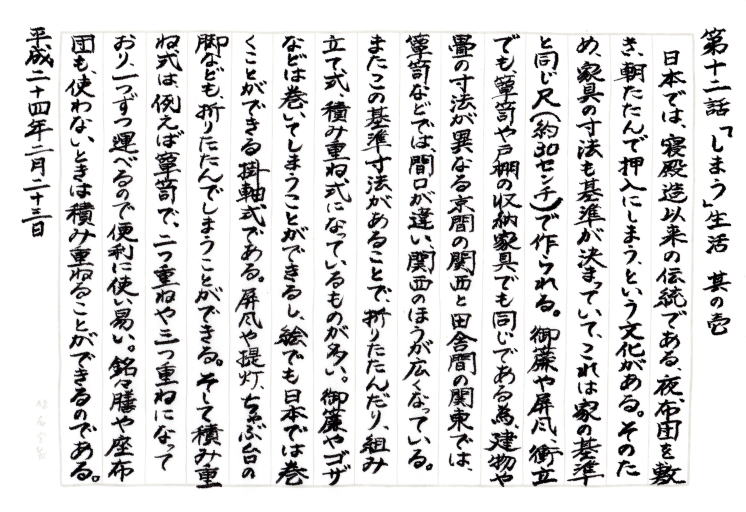 第十二話「しまう」生活 其の壱
日本では、寝殿造以来の伝統である、夜、布団を敷
き、朝たたんで押入にしまう、という文化がある。そのた
め、家具の寸法も基準が決まっていて、これは家の基準
と同じ尺(約30センチ)で作られる。御簾や屏風、衝立
でも、箪笥や戸棚の収納家具でも同じである為、建物や
畳の寸法が異なる京間の関西と田舎間の関東では、
箪笥などでは、間口が違い、関西のほうが広くなっている。
またこの基準寸法があることで、折りたたんだり、組み
立て式、積み重ね式になっているものが多い。御簾やゴザ
などは巻いてしまうことができるし、絵でも日本では巻
くことができる掛軸式である。屏風や提灯、ちゃぶ台の
脚なども、折りたたんでしまうことができる。そして積み重
ね式は、例えば箪笥で、二つ重ねや三つ重ねになって
おり、一つずつ運べるので便利に使い易い。銘々膳や座布
団も、使わないときは積み重ねることができるのである。
平成二十四年二月二十三日